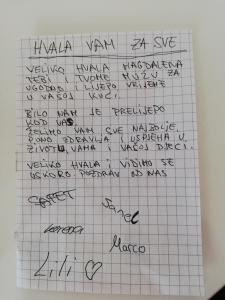 HVALA VAM ZA SVE
VELIKO HVALA MAGDALENA
TEBI I TVOME MUŽU ZA
UGODNO I LIJEPO VRIJEME
U VAŠOJ KUĆI.
BILO NAM JE PRELIJEPO
KOD VAS.
ŽELIMO VAM SVE NAJBOLJE,
PUNO ZDRAVLJA I USPJEHA U
ŽIVOTU, VAMA I VAŠOJ DJECI.
VELIKO HVALA I VIDIMO SE
USKORO. POZDRAV OD NAS
SAFET
Sanel
Lorena
Marco
Lili